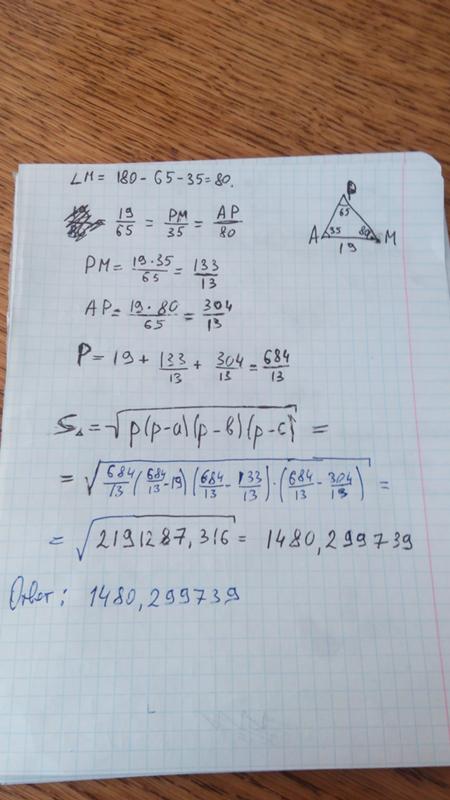 ∠M = 180 - 65 - 35 = 80.
19/65 = PM/35 = AP/80
PM = 19·35/65 = 133/13
AP = 19·80/65 = 304/13
P = 19 + 133/13 + 304/13 = 684/13
S△ = √(p(p-a)(p-в)(p-c)) =
= √(684/13 (684/13 - 19) (684/13 - 133/13) · (684/13 - 304/13)) =
= √2191287,316 = 1480,299739
Ответ: 1480,299739
P
65
A 35 80 M
19